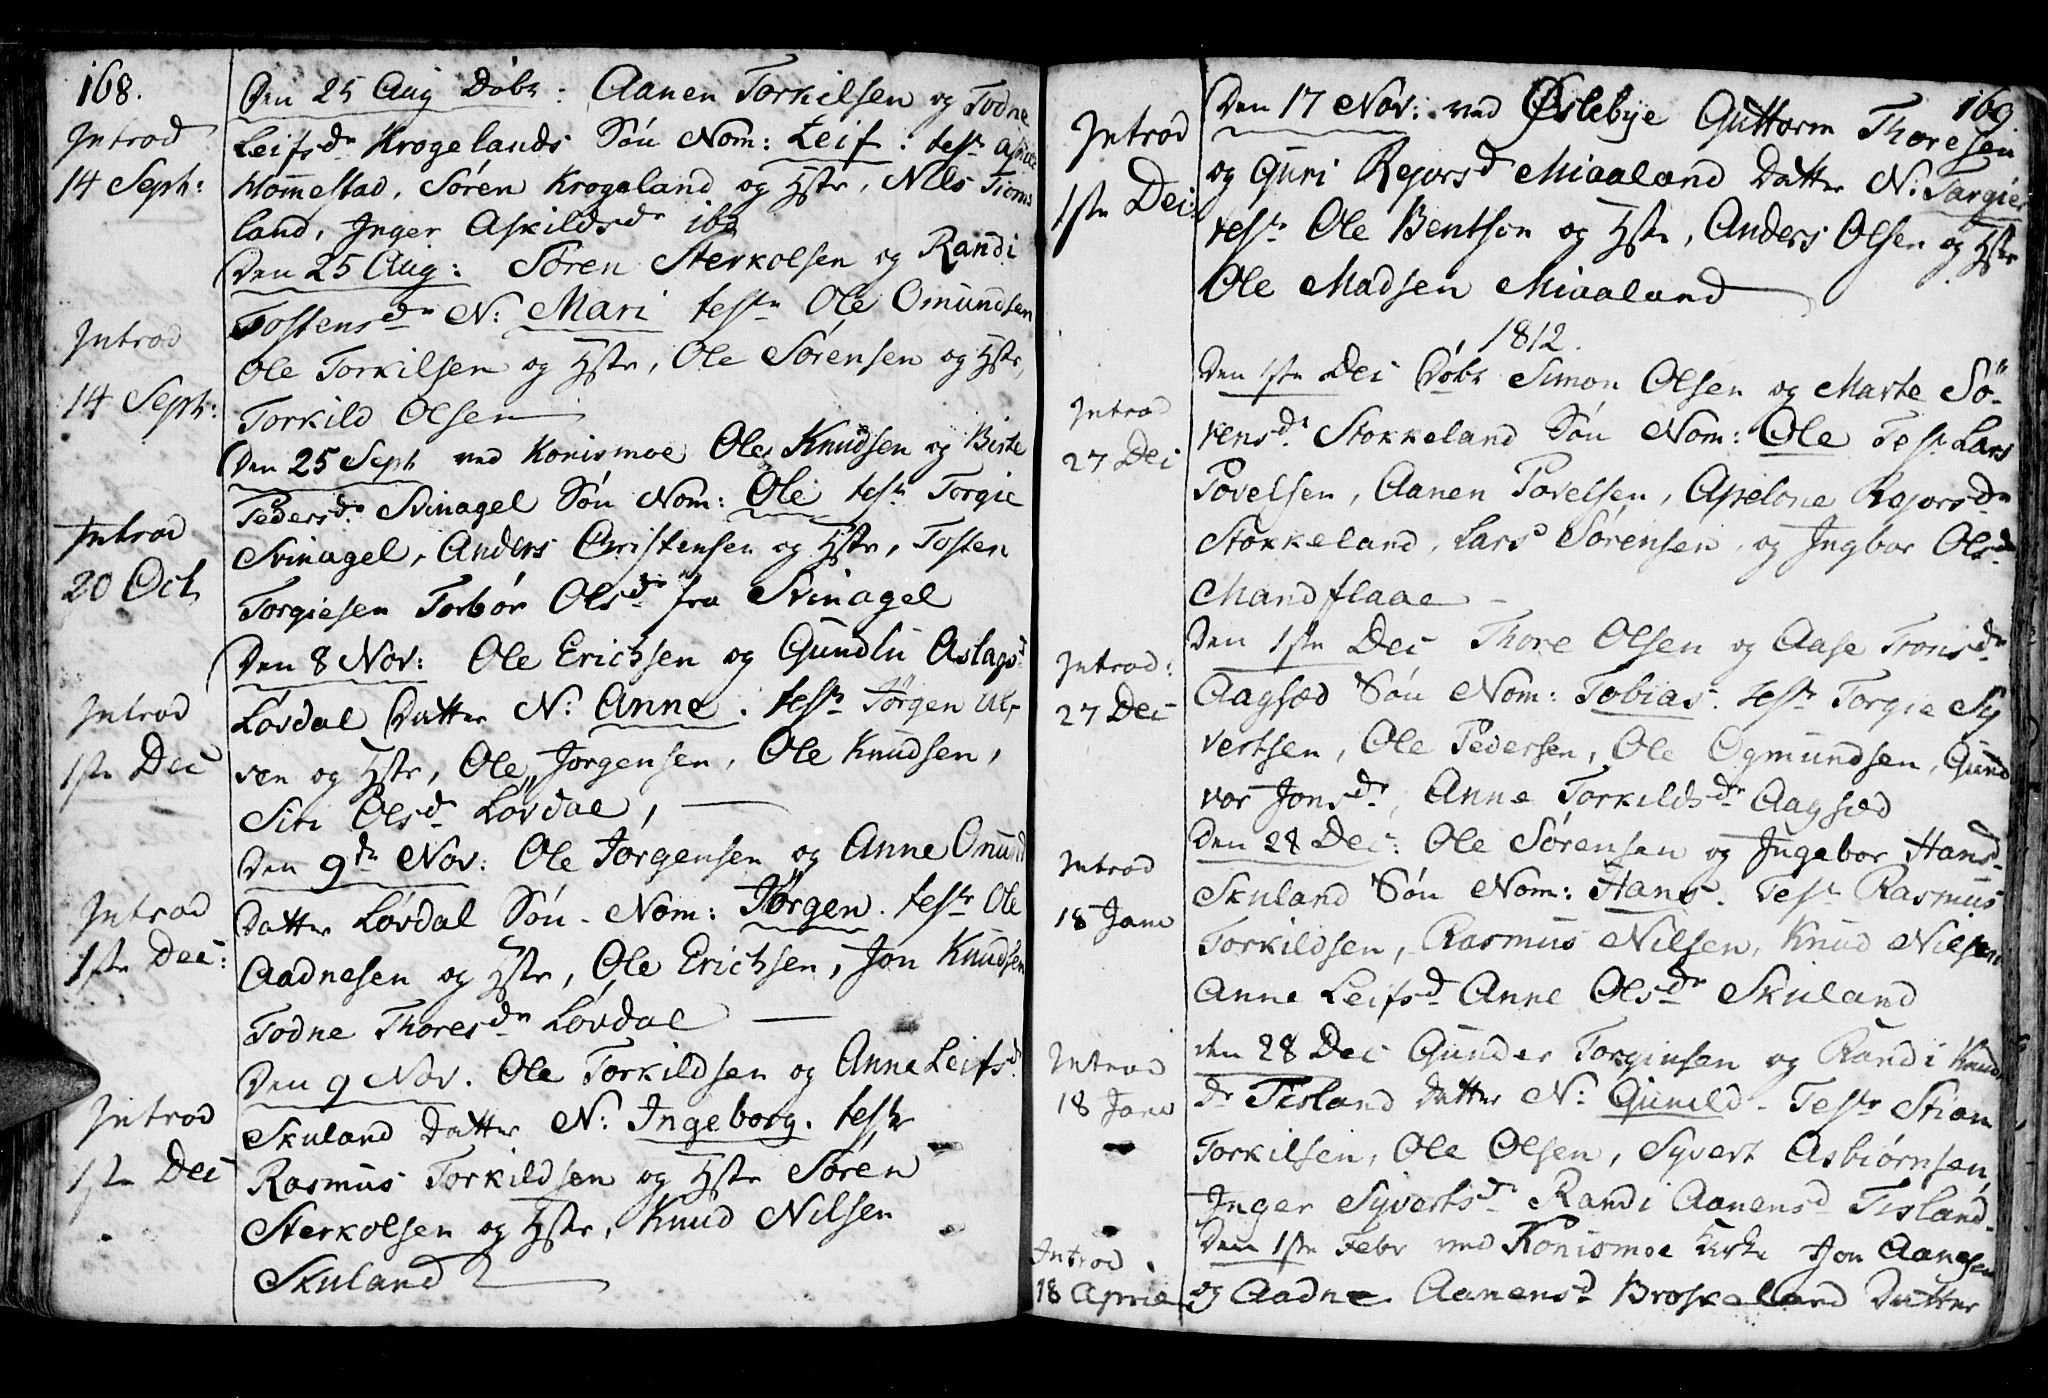 168.
Introd
14 Sept:
Den 25 Aug Döbt: Aanen Torkilsen og Todne
Leifsdr Krogelands Sön Nom: Leif. test
Hommestad, Sören Krogeland og Hstr, Nils Tioms
land, Inger Askildsdr ibd
Introd
14 Sept:
Den 25 Aug: Sören Sterkolsen og Randi
Tostensdr N: Mari testr Ole Omundsen
Ole Torkilsen og Hstr, Ole Sörensen og Hstr,
Torkild Olsen
Introd
20 Oct
Den 25 Sept ved Konismoe Ole Knudsen og Birte
Pedersdr Svinagel Sön Nom: Ole testr Torgie
Svinagel, Anders Christensen og Hstr, Tosten
Torgiesen Torbör Olsdr fra Svinagel
Introd
1ste Dec
Den 8 Nov: Ole Erichsen og Gundlu Aslagsd
Lövdal Datter N: Anne. testr Jörgen Ul-
ven og Hstr, Ole Jörgensen, Ole Knudsen,
Siri Olsdr Lövdal,
Introd
1ste Dec:
Den 9de Nov: Ole Jörgensen og Anne Omund
Datter Lövdal Sön - Nom: Jörgen. testr Ole
Aadnesen og Hstr, Ole Erichsen, Jon Knudsen
Todne Thoresdr Lövdal
Introd
1ste Dec
Den 9 Nov. Ole Torkildsen og Anne Leifsd
Skuland Datter N: Ingeborg. testr
Rasmus Torkildsen og Hstr Sören
Sterkolsen og Hstr, Knud Nilsen
Skuland
169.
Introd
1ste Dec:
Den 17 Nov: ved Øslebye Guttorm Thoresen
og Guri Rejorsd Miaaland Datter N: Targier
testr Ole Bentsen og Hstr, Anders Olsen og Hstr
Ole Madsen Miaaland
1812.
Introd
27 Dec
Den 1ste Dec Döbt Simon Olsen og Marte Sö-
rensdr Stokkeland Sön Nom: Ole Testr Lars
Povelsen, Aanen Povelsen, Apelone Rejorsdr
Stokkeland, Lars Sörensen, og Ingbor Olsdr
Mandflaae
Introd:
27 Dec
Den 1ste Dec Thore Olsen og Aase Tronsdr
Aagsæd Sön Nom: Tobias. testr Torgie Sy
vertsen, Ole Pedersen, Ole Ogmundsen, Gund
vor Jonsdr, Anne Torkildsdr Aagsæd
Introd
18 Janu
Den 28 Dec: Ole Sörensen og Ingebor Hansd-
Skuland Sön Nom: Hans. Testr Rasmus
Torkildsen, Rasmus Nilsen, Knud Nielsen
Anne Leifsd Anne Olsdr Skuland
Introd
18 Janu
den 28 Dec Gunder Torgiusen og Randi Knuds
dr Tisland Datter N: Gunild - Testr Stian
Torkilsen, Ole Olsen, Syvert Asbiörnsen,
Inger Syvertsdr Randi Aanensd Tisland.
Introd
18 April
Den 1ste Febr ved Konismoe Kirke Jon Aanesen
og Aadne Aanensd Broskeland Datter